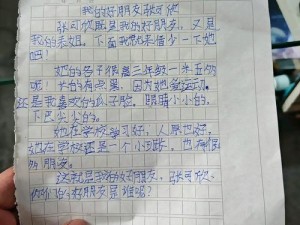 我的好朋友张可欣
张可欣既是我的好朋友,又是
我的表姐,下面我就来借少一下她
吧!
她的各子很高三年级一米五的
呢!长的有点黑,因为她爱运动,
还是我喜欢的瓜子脸,眼睛小小的,
下巴尖尖的。
她在学校学习好,人原也好,
她在学校还是一个小组长,也有很
所朋友。
这就是我的好朋友,张可欣,
你们的好朋友是谁呢?